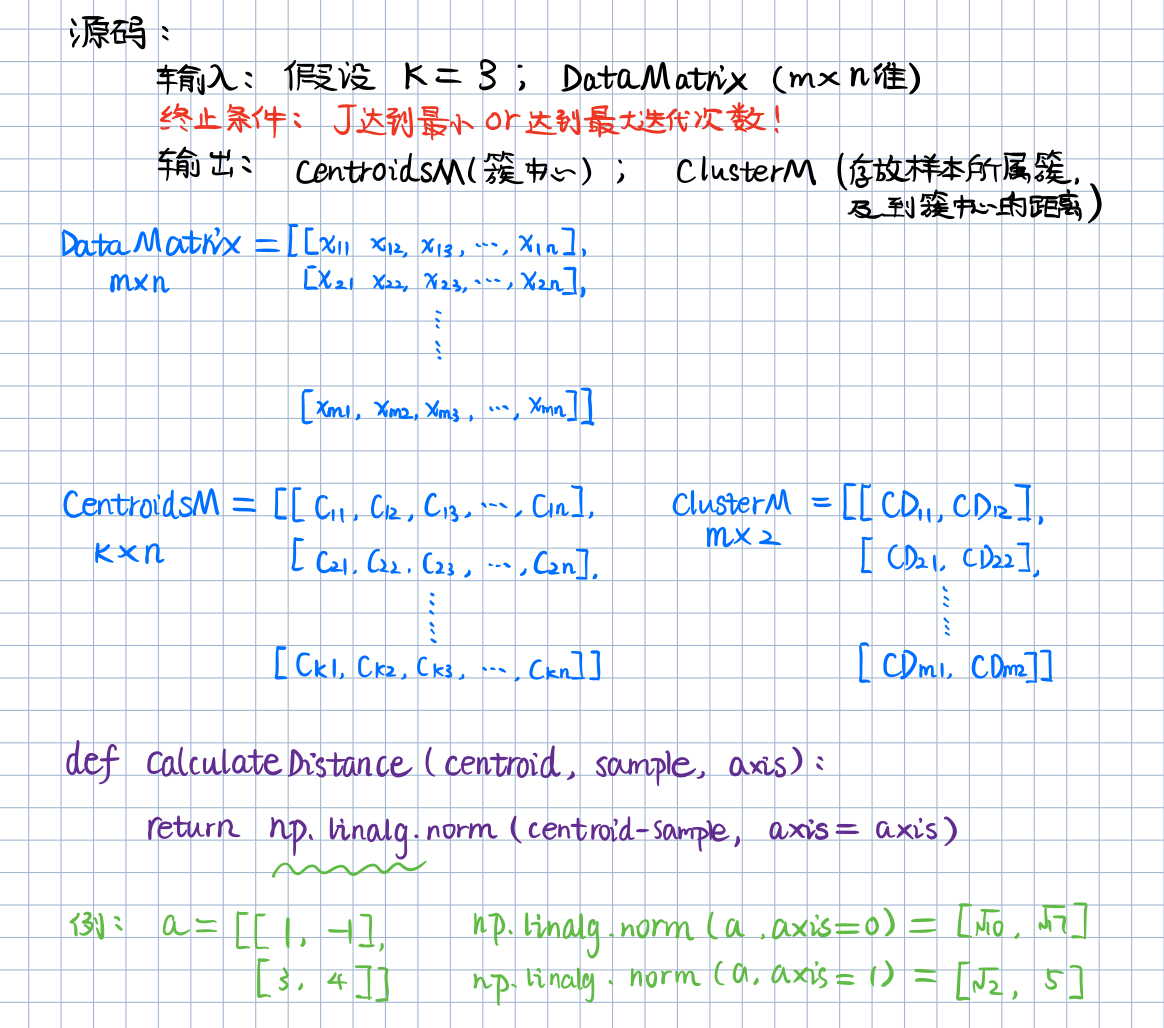 源码：
输入： 假设 K = 3 ； DataMatrix (m×n维)
终止条件： J达到最小 or 达到最大迭代次数！
输出： CentroidsM(簇中心) ； ClusterM (存放样本所属簇,
及到簇中心的距离)
DataMatrix = [[x₁₁ x₁₂, x₁₃, ⋯, x₁ₙ],
m×n [x₂₁ x₂₂, x₂₃, ⋯, x₂ₙ],
⋮
⋮
[xₘ₁, xₘ₂, xₘ₃, ⋯, xₘₙ]]
CentroidsM = [[C₁₁, C₁₂, C₁₃, ⋯, C₁ₙ],
K×n [C₂₁, C₂₂, C₂₃, ⋯, C₂ₙ],
⋮
⋮
[Cₖ₁, Cₖ₂, Cₖ₃, ⋯, Cₖₙ]]
ClusterM = [[CD₁₁, CD₁₂],
m×2 [CD₂₁, CD₂₂],
⋮
⋮
[CDₘ₁, CDₘ₂]]
def CalculateDistance (centroid, sample, axis):
return np.linalg.norm (centroid-sample, axis = axis)
例： a = [[1, -1], np.linalg.norm (a, axis=0) = [√10, √17]
[3, 4]] np.linalg.norm (a, axis=1) = [√2, 5]